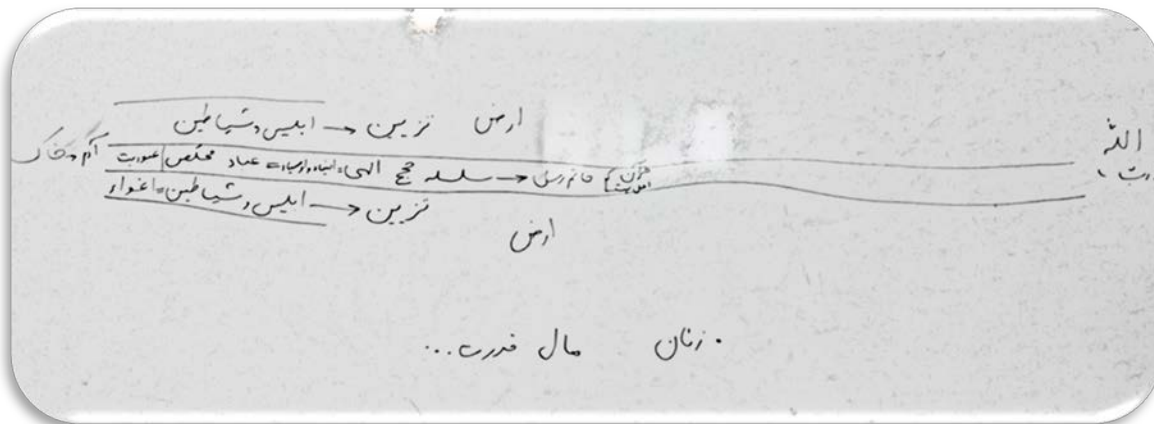 ارض تزیین ← ابلیس و شیاطین
الله
رب
قرآن خاتم رسل ← سلسله حجج الهی = انبیاء و اوصیاء = عباد مخلص عبودیت
اهل بیت
آدم خاک
تزیین ← ابلیس و شیاطین = اغواء
ارض
. زنان مال قدرت...